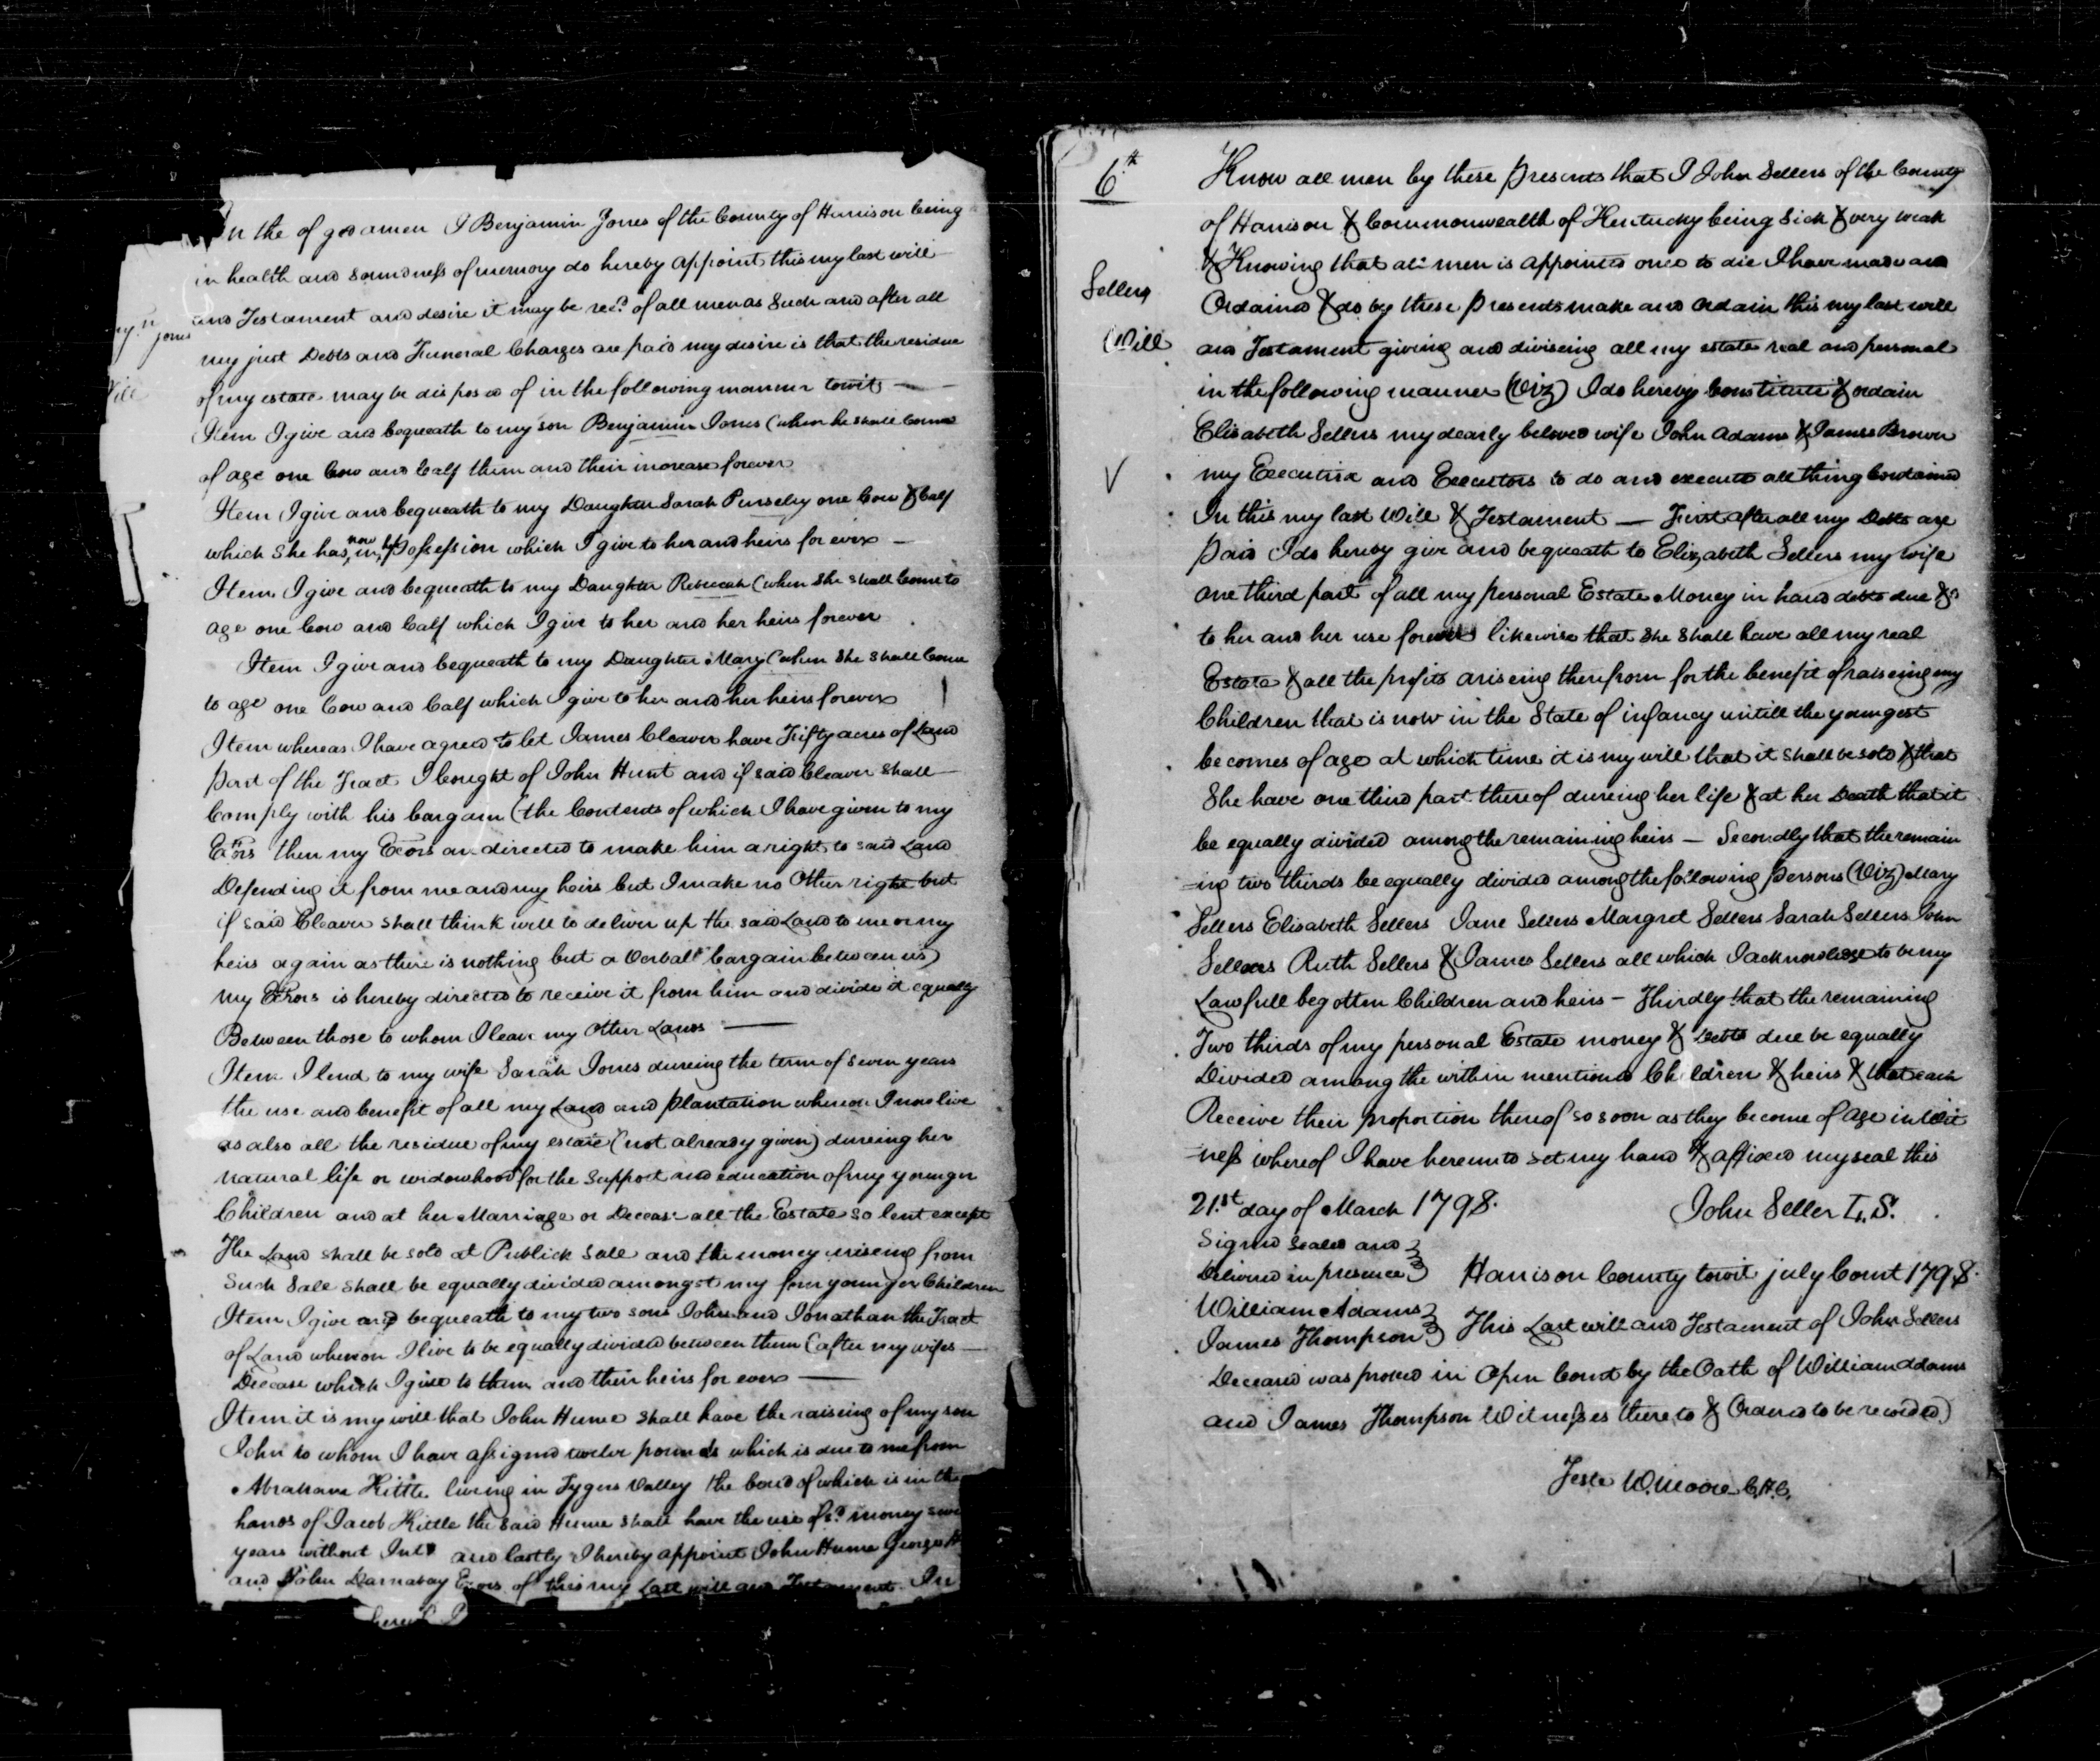 In the of god amen I Benjamin Jones of the County of Harrison being
in health and soundness of memory do hereby appoint this my last will
and Testament and desire it may be recd of all men as Such and after all
Jones
my just Debts and Funeral Charges are paid my desire is that the residue
of my estate may be disposed of in the following manner towit —
Item I give and bequeath to my son Benjamin Jones (when he shall come
of age one Cow and Calf them and their increase forever
Item I give and bequeath to my Daughter Sarah Purseley one Cow & Calf
which She has now in Possession which I give to her and heirs for ever —
Item I give and bequeath to my Daughter Rebecah (when She shall Come to
age one Cow and Calf which I give to her and her heirs forever
Item I give and bequeath to my Daughter Mary (when She shall Come
to age one Cow and Calf which I give to her and her heirs forever
Item whereas I have agreed to let James Cleaver have Fifty acres of Land
Part of the Tract I bought of John Hunt and if said Cleaver shall
Comply with his bargain (the Contents of which I have given to my
Exors then my Exors are directed to make him a right to said Land
Defending it from me and my heirs but I make no Other right but
if said Cleaver shall think well to deliver up the said Land to me or my
heirs again as there is nothing but a Verball bargain between us)
my Exors is hereby directed to receive it from him and divide it equally
Between those to whom I leave my Other Lands —
Item I lend to my wife Sarah Jones dureing the term of seven years
the use and benefit of all my Land and plantation whereon I now live
as also all the residue of my estate (not already given) dureing her
natural life or widowhood for the Support and education of my younger
Children and at her Marriage or Decease all the Estate so lent except
The Land shall be sold at Publick Sale and the money ariseing from
Such Sale shall be equally divided amongst my four younger Children
Item I give and bequeath to my two sons John and Jonathan the Tract
of Land whereon I live to be equally divided between them (after my wifes —
Decease which I give to them and their heirs for ever —
Item it is my will that John Hume shall have the raiseing of my son
John to whom I have assigned twelve pounds which is due to me from
Abraham Kittle living in Tygers Valley the bond of which is in the
hands of Jacob Kittle the said Hume shall have the use of sd money
years without Int and lastly I hereby appoint John Hume George H
and John Darnabay Exors of this my Last will and Testament In
6th
Know all men by these presents that I John Sellers of the County
of Harrison & Commonwealth of Kentucky being Sick & very weak
& Knowing that all men is appointed once to die I have made and
Sellers
Ordained & do by these presents make and ordain this my last will
Will
and Testament giving and diviseing all my estate real and personal
in the following manner (Viz) I do hereby Constitute & ordain
Elisabeth Sellers my dearly beloved wife John Adams & James Brown
my Executrix and Executors to do and execute all thing Contained
In this my last Will & Testament — First after all my Debts are
Paid I do hereby give and bequeath to Elizabeth Sellers my wife
one third part of all my personal Estate Money in hand debts due &c
to her and her use forever likewise that She Shall have all my real
Estate & all the profits ariseing therefrom for the benefit of raiseing my
Children that is now in the State of infancy untill the youngest
becomes of age at which time it is my will that it shall be sold & that
She have one third part thereof dureing her life & at her Death that it
be equally divided among the remaining heirs — Secondly that the remain
=ing two thirds be equally divided among the following persons (Viz) Mary
Sellers Elisabeth Sellers Jane Sellers Margret Sellers Sarah Sellers John
Sellers Ruth Sellers & James Sellers all which I acknowledge to be my
Lawfull begotten Children and heirs — Thirdly that the remaining
Two thirds of my personal Estate money & Debts due be equally
Divided among the within mentioned Children & heirs & that each
Receive their proportion thereof so soon as they become of age in Wit
=ness whereof I have hereunto set my hand & affixed my seal this
21st day of March 1798. John Seller L.S.
Signed Sealed and
Delivered in presence Harrison County towit July Court 1798.
William Adams
James Thompson This Last will and Testament of John Sellers
Deceased was proved in Open Court by the Oath of William Adams
and James Thompson Witnesses thereto & Ordered to be recorded)
Teste W. Moore C.H.C.